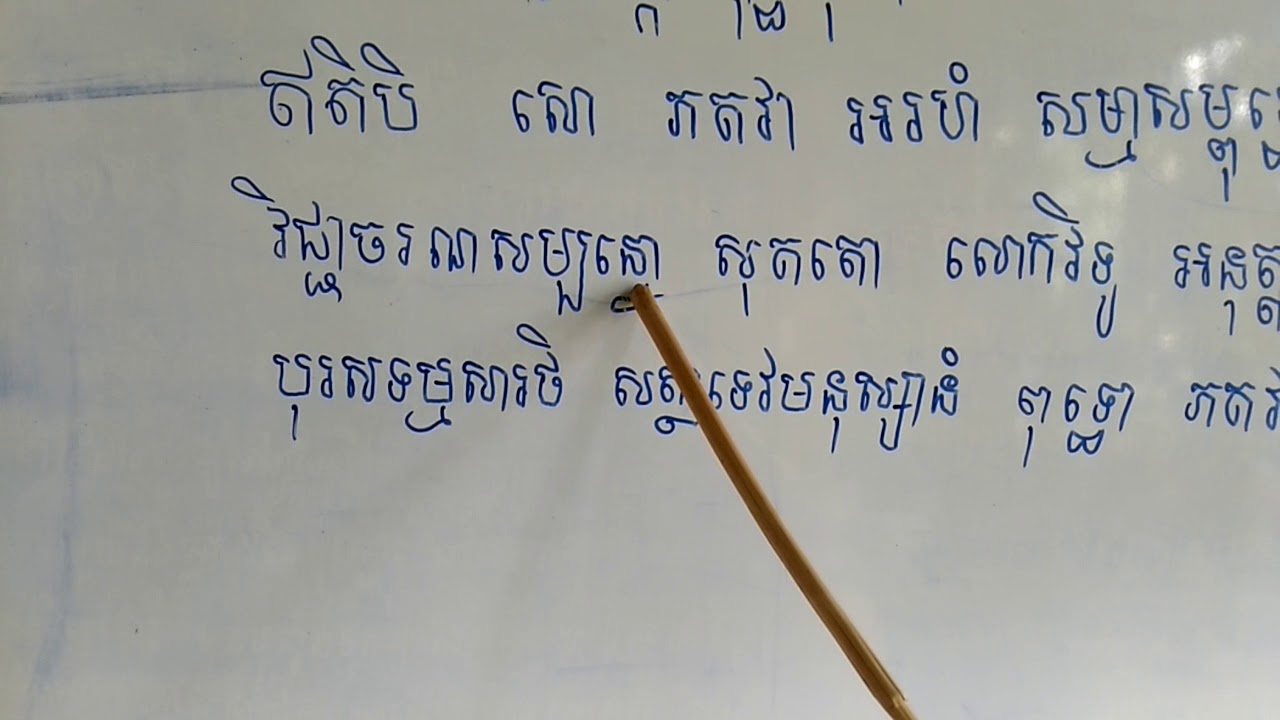 ឥតិបិ សោ ភគវា អរហំ សម្មាសម្ពុទ្ធោ
វិជ្ជាចរណសម្បន្នោ សុគតោ លោកវិទូ អនុត្ត
បុរសទម្មសារថិ សត្ថាទេវមនុស្សានំ ពុទ្ធោ ភគវ